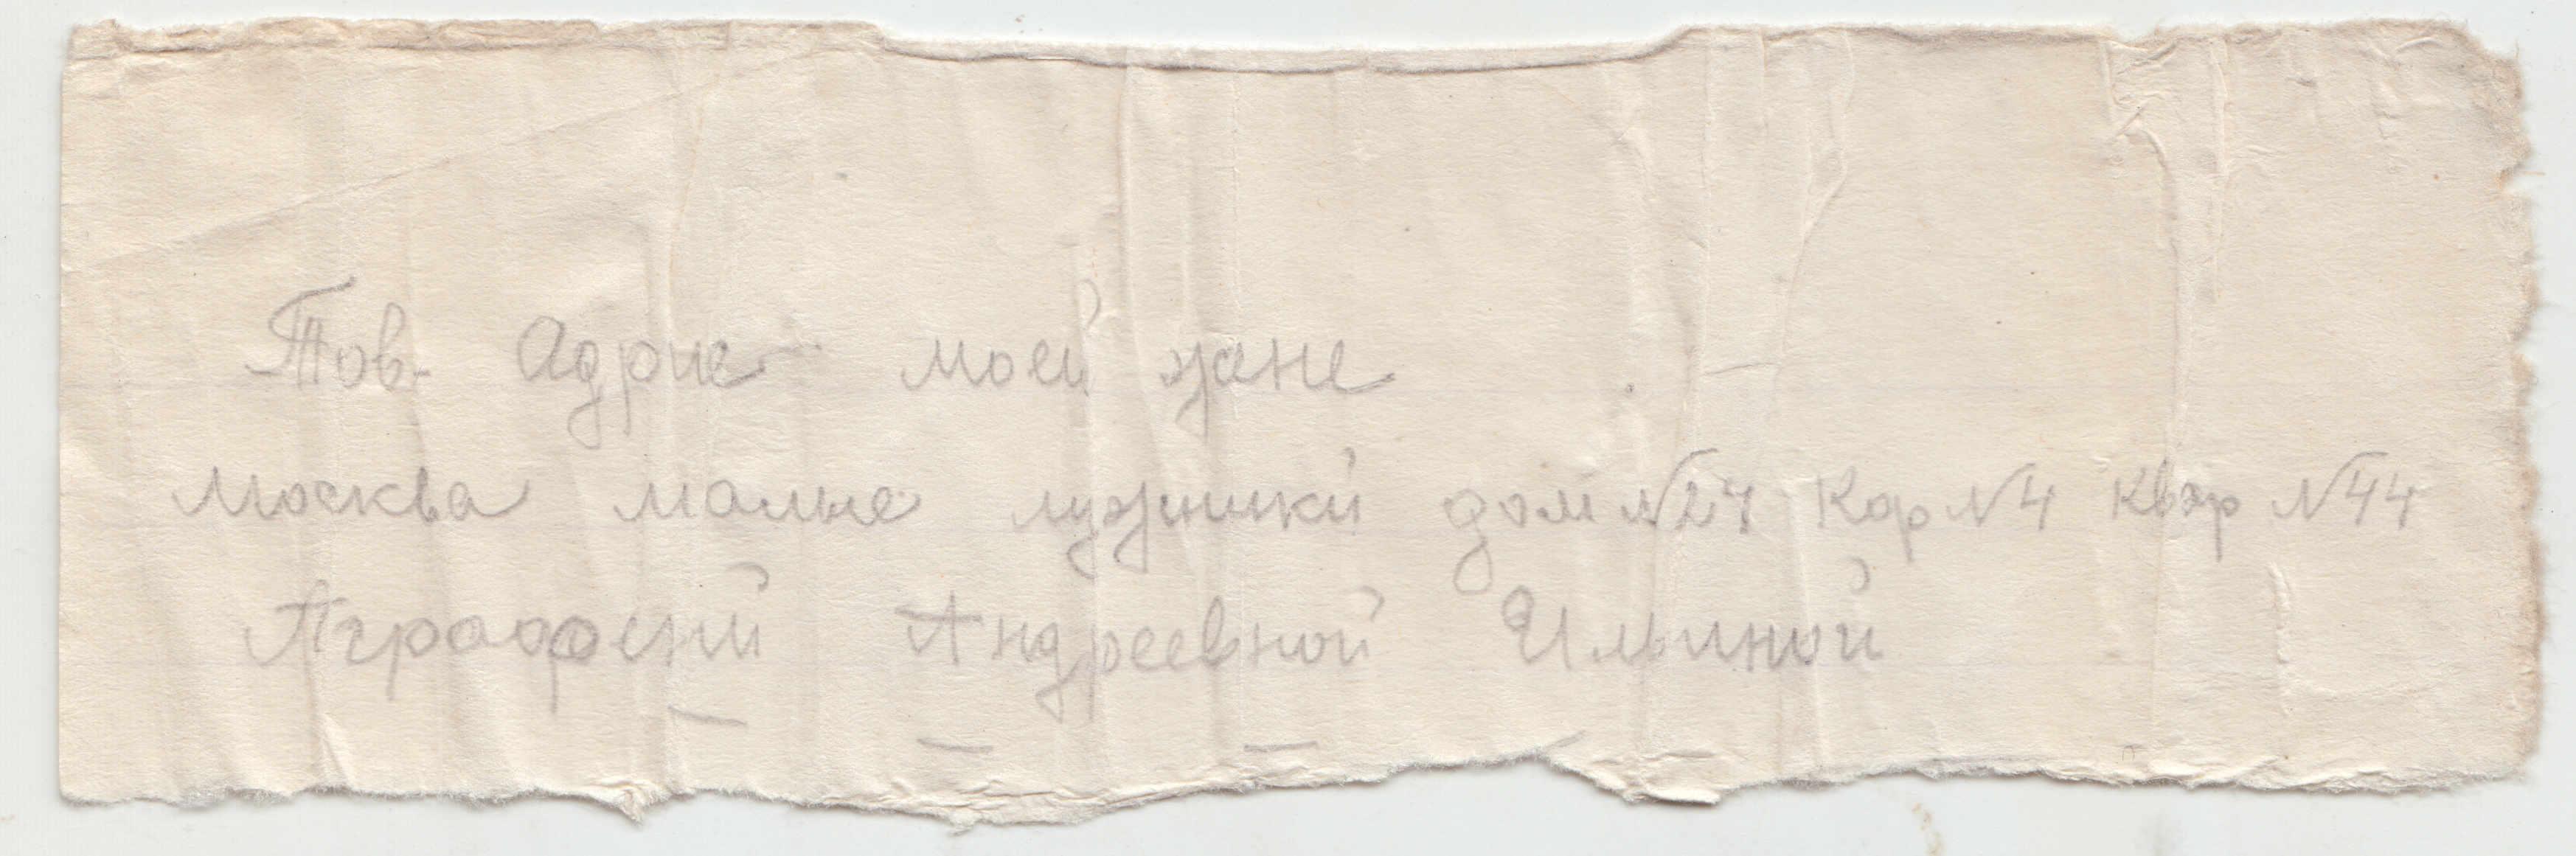 Тов. адрис моей жене
Москва малые лужники дом №24 Кор №4 квар №44
Аграфений Андреевной Ильиной